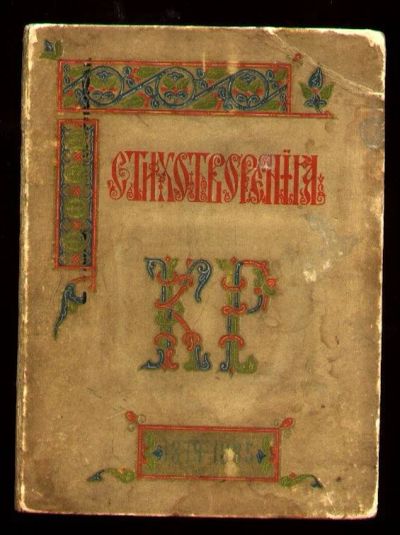 СТИХОТВОРЕНІЯ
КР
1879-1885